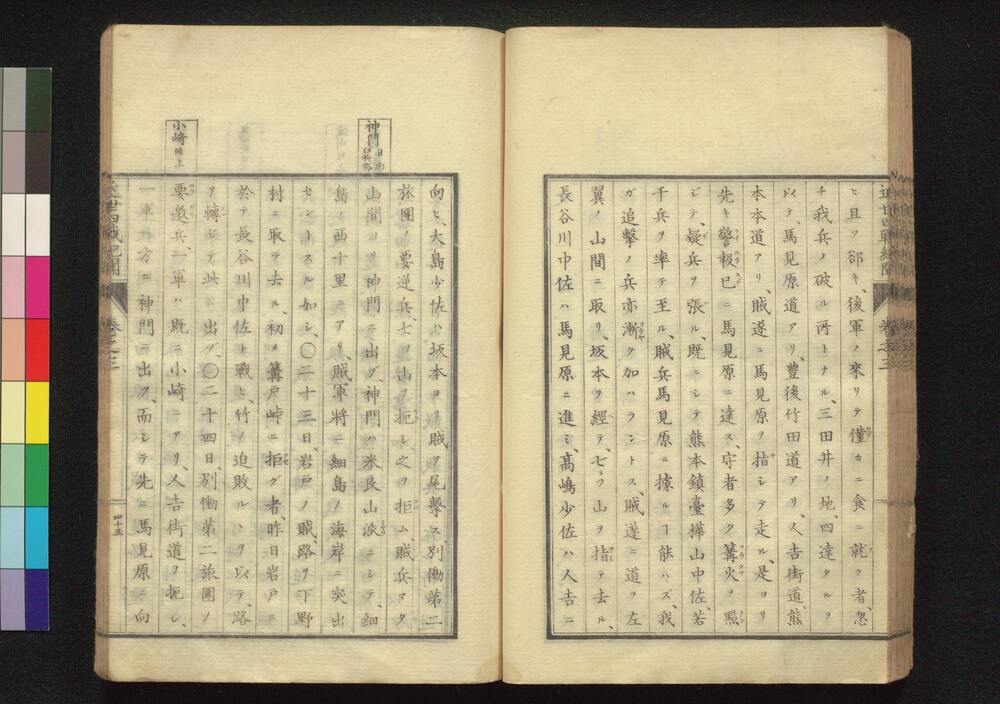 ヒ且ツ郤キ、後軍ノ來リテ僅カニ食ニ就ク者、忽
チ我兵ノ破ル所トナル、三田井ノ地、四達タルヲ
以テ、馬見原道アリ、豊後竹田道アリ、人吉街道、熊
本本道アリ、賊遂ニ馬見原ノ指シテ走ル、是ヨリ
先キ警報已ニ馬見原ニ達ス、守者多ク篝火ヲ點
ジテ、疑兵ヲ張ル、既ニシテ熊本鎮臺樺山中佐、若
干兵ヲ率テ至ル、賊兵馬見原ニ據ルヿ能ハズ、我
ガ追擊ノ兵亦漸ク加ハラントス、賊遂ニ道ヲ左
翼ノ山間ニ取リ、坂本ヲ經テ、七ツ山ヲ指テ去ル、
長谷川中佐ハ馬見原ニ進ミ、高嶋少佐ハ人吉ニ
卷之三
向ヒ、大島少佐ハ坂本ヨリ賊ヲ尾擊ス、別働第二
旅團ノ要逆兵、七ツ山ヲ扼シ、之ヲ拒ム、賊兵マタ
山間ヨリ神門ニ出ヅ、神門ハ米良山派ニシテ、細
島ノ西十里ニアリ、賊軍將ニ細島ノ海岸ニ突出
セントスル如シ、〇二十三日、岩戸ノ賊、路ヲ下野
村ニ取テ去ル、初メ篝戸峠ニ拒グ者、昨日岩戸ニ
於テ長谷川中佐ト戰ヒ、竹ノ迫敗ルヽヲ以テ、路
ヲ轉ジテ此ニ出ヅ、〇二十四日、別働第二旅團ノ
要邀兵、一軍ハ既ニ小崎ニアリ、人吉街道ヲ扼シ、
一軍ノ方ニ神門ニ出ヅ、而シテ先ニ馬見原ニ向
神門
小崎 同上
卷之三
四十五